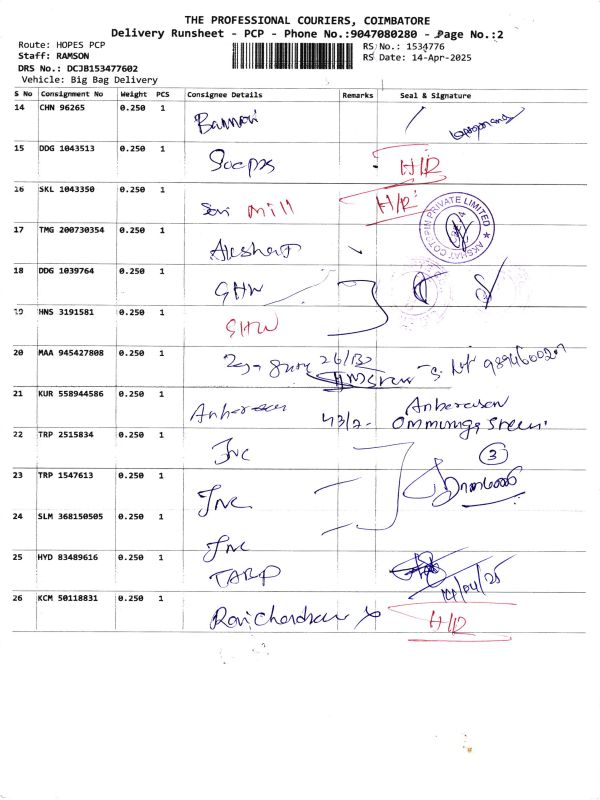 THE PROFESSIONAL COURIERS, COIMBATORE
Delivery Runsheet - PCP - Phone No.:9047080280 - Page No.:2
Route: HOPES PCP
RS No.: 1534776
Staff: RAMSON
RS Date: 14-Apr-2025
DRS No.: DCJB153477602
Vehicle: Big Bag Delivery
S No Consignment No Weight PCS Consignee Details Remarks Seal & Signature
14 CHN 96265 0.250 1
Bannari
15 DDG 1043513 0.250 1
H/R
16 SKL 1043350 0.250 1
Sri Mill H/R
AKSHAT COTSPIN PRIVATE LIMITED
17 TMG 200730354 0.250 1
Akshat
18 DDG 1039764 0.250 1
GHW
19 HNS 3191581 0.250 1
GHW
20 MAA 945427808 0.250 1
26/132
21 KUR 558944586 0.250 1
Anbarasan 43/2- Anbarasan
22 TRP 2515834 0.250 1
Inc
3
23 TRP 1547613 0.250 1
Inc
24 SLM 368150505 0.250 1
Inc
25 HYD 83489616 0.250 1
TABP
14/04/25
26 KCM 50118831 0.250 1
Ravichandran
H/R